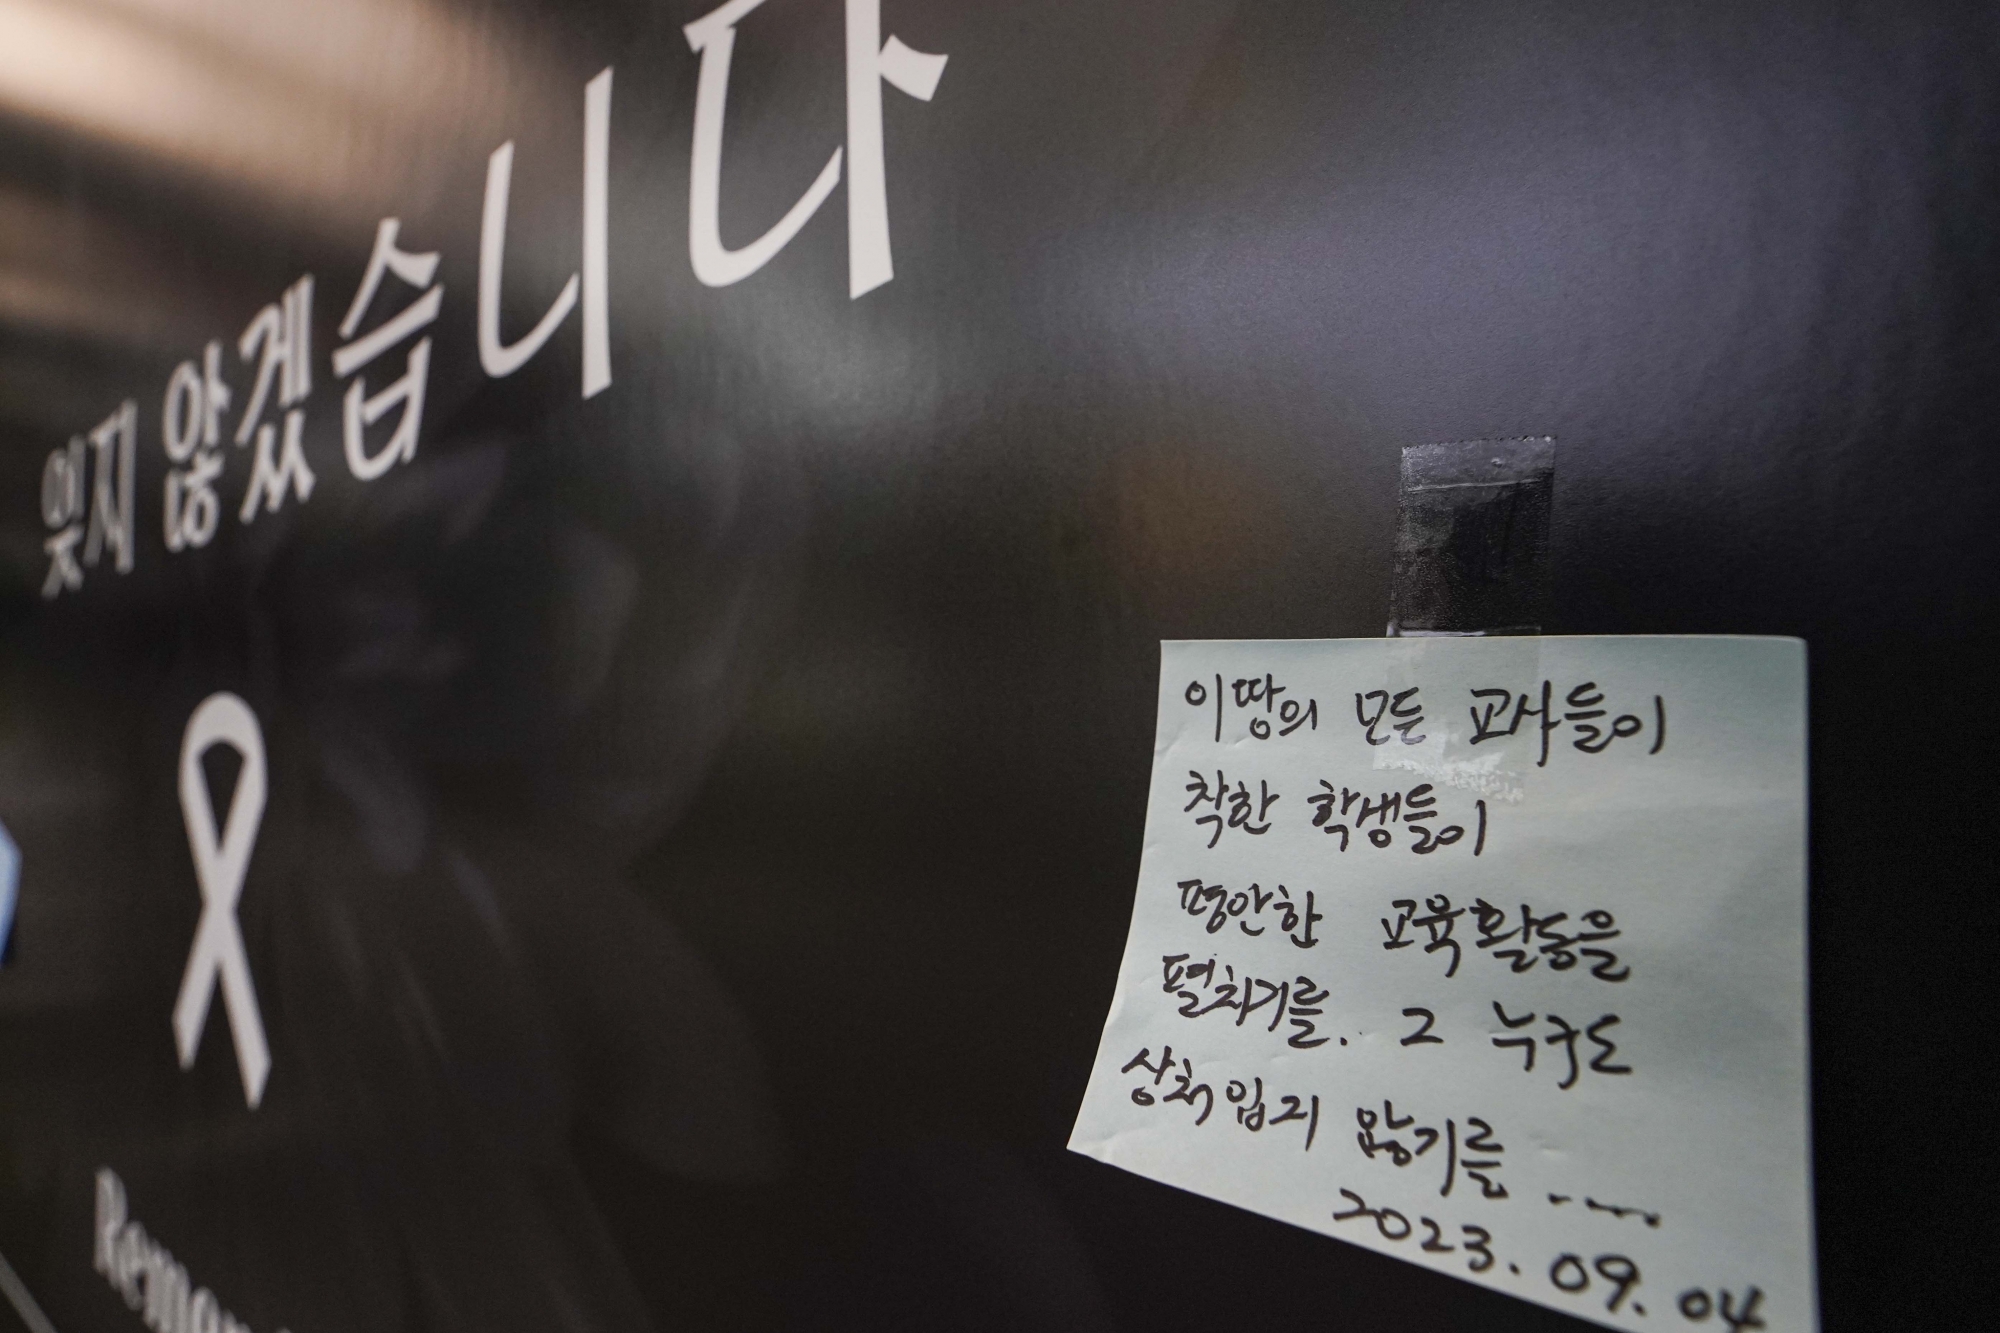 잊지 않겠습니다
이 땅의 모든 교사들이
착한 학생들이
평안한 교육활동을
펼치기를.. 그 누구도
상처 입지 않기를 .....
2023. 09. 04